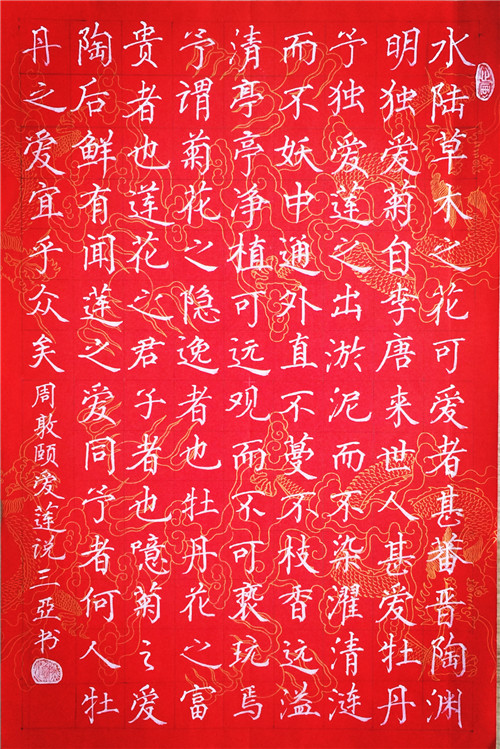 水陆草木之花可爱者甚番晋陶渊
明独爱菊自李唐来世人甚爱牡丹
予独爱莲之出淤泥而不染濯清涟
而不妖中通外直不蔓不枝香远溢
清亭亭净植可远观而不可亵玩焉
予谓菊花之隐逸者也牡丹花之富
贵者也莲花之君子者也噫菊之爱
陶后鲜有闻莲之爱同予者何人牡
丹之爱宜乎众矣
周敦颐爱莲说三亞书